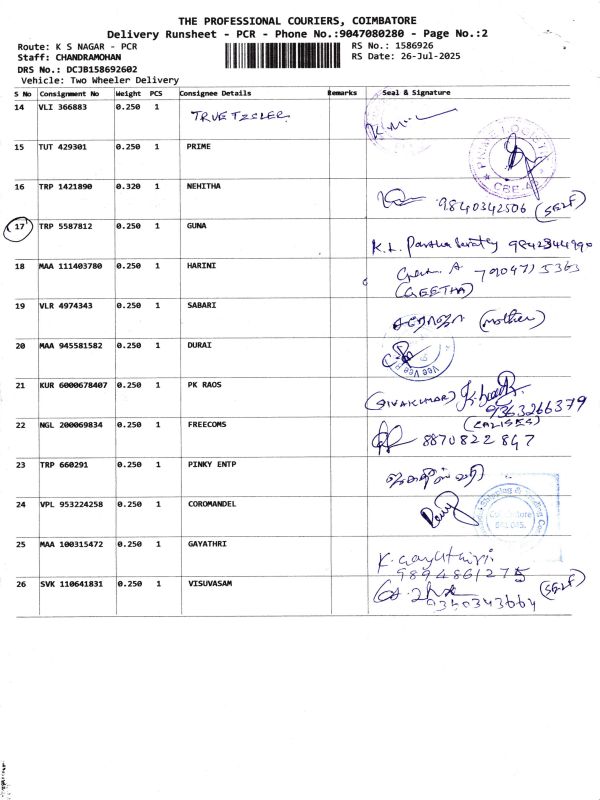 THE PROFESSIONAL COURIERS, COIMBATORE
Delivery Runsheet - PCR - Phone No.:9047080280 - Page No.:2
Route: K S NAGAR - PCR RS No.: 1586926
Staff: CHANDRAMOHAN RS Date: 26-Jul-2025
DRS No.: DCJB158692602
Vehicle: Two Wheeler Delivery
S No Consignment No Weight PCS Consignee Details Remarks Seal & Signature
14 VLI 366883 0.250 1
15 TUT 429301 0.250 1 PRIME
16 TRP 1421890 0.320 1 NEHITHA
9840342506 (SELF)
17 TRP 5587812 0.250 1 GUNA
K.L. 9842344990
18 MAA 111403780 0.250 1 HARINI
(GEETHA)
19 VLR 4974343 0.250 1 SABARI
சரோஜா (mother)
20 MAA 945581582 0.250 1 DURAI
21 KUR 6000678407 0.250 1 PK RAOS
(SIVAKUMAR)
9363266379
22 NGL 200069834 0.250 1 FREECOMS
8870822847
23 TRP 660291 0.250 1 PINKY ENTP
24 VPL 953224258 0.250 1 COROMANDEL
Coimbatore
25 MAA 100315472 0.250 1 GAYATHRI
K. Gayathiri
9894861275
26 SVK 110641831 0.250 1 VISUVASAM
(SELF)